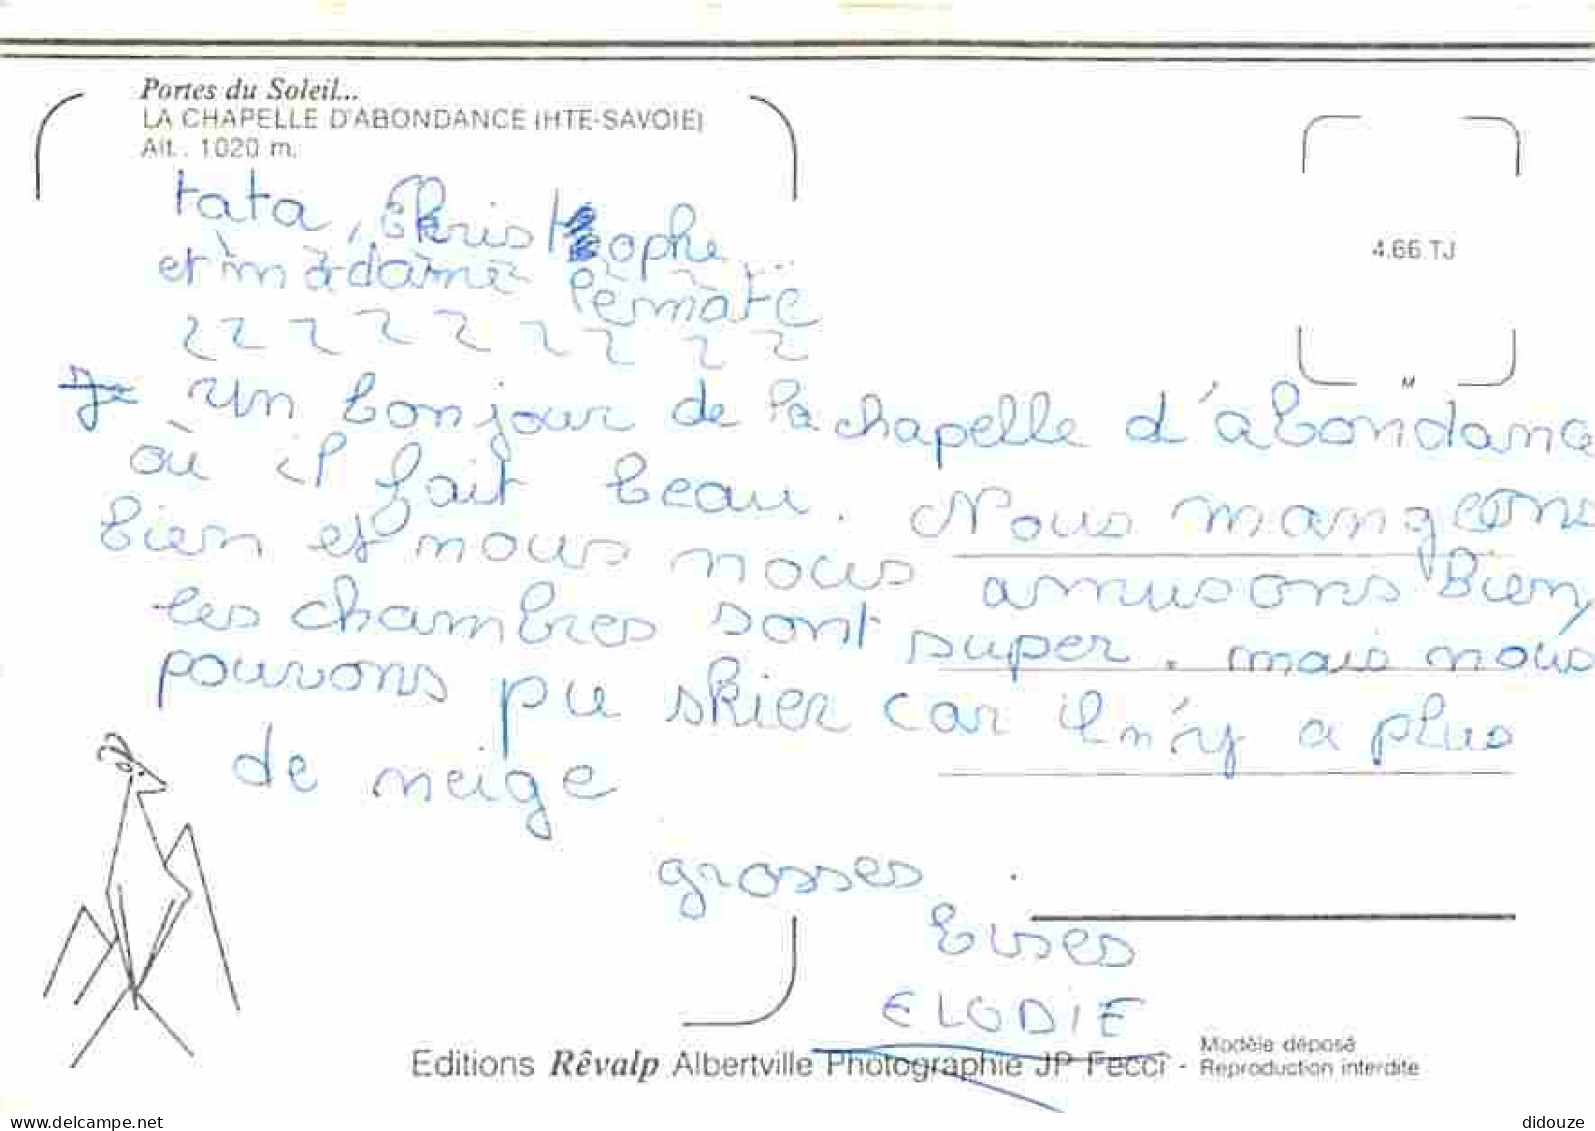 Portes du Soleil...
LA CHAPELLE D'ABONDANCE (HTE-SAVOIE)
Alt. 1020 m.
4.66.TJ
M
tata, Christophe
et madame
Je Un bonjour de la chapelle d'abondance
où il fait beau. Nous mangeons
bien et nous nous amusons bien
les chambres sont super. mais nous
pouvons pu skier car il n'y a plus
de neige
grosses
bises
ELODIE
Editions Rêvalp Albertville Photographie JP Fecci - Modèle déposé
Reproduction interdite
www.delcampe.net
didouze